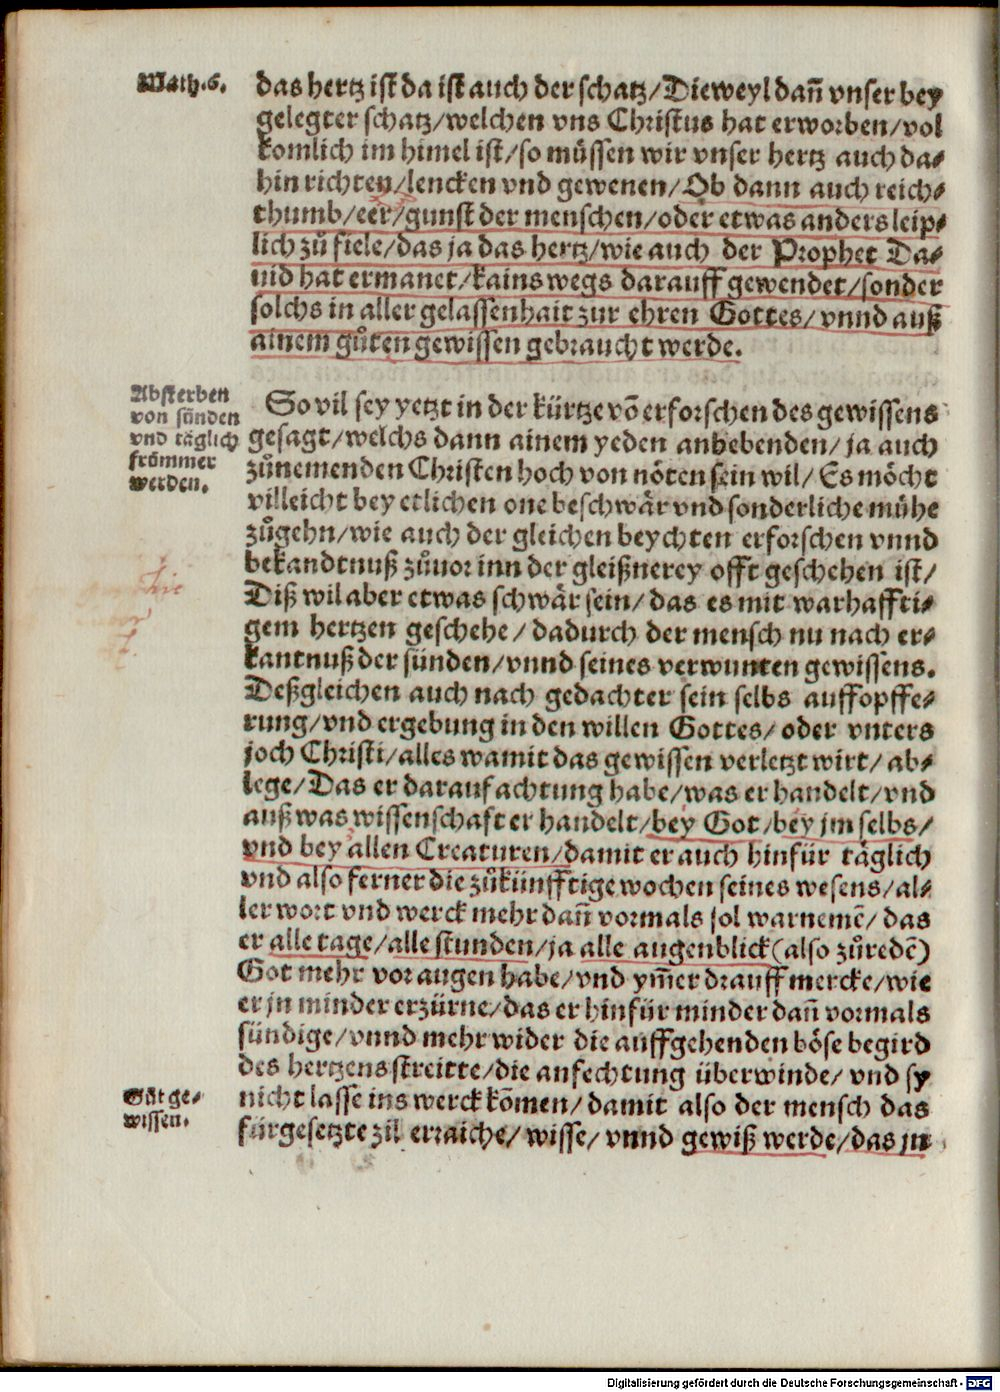 Math.6.
das hertz ist da ist auch der schatz/Dieweyl dañ vnser bey
gelegter schatz/welchen vns Christus hat erworben/vol
komlich im himel ist/so müssen wir vnser hertz auch da⸗
hin richten/lencken vnd gewenen/Ob dann auch reich⸗
thumb/eer/gunst der menschen/oder etwas anders leip⸗
lich zů fiele/das ja das hertz/wie auch der Prophet Da⸗
uid hat ermanet/kains wegs darauff gewendet/sonder
solchs in aller gelassenhait zur ehren Gottes/vnnd auß
ainem gůten gewissen gebraucht werde.
Absterben
von sünden
vnd täglich
frömmer
werden.
So vil sey yetzt in der kürtze võ erforschen des gewissens
gesagt/welchs dann ainem yeden anhebenden/ja auch
zůnemenden Christen hoch von nöten sein wil/Es möcht
villeicht bey etlichen one beschwär vnd sonderliche mühe
zůgehn/wie auch der gleichen beychten erforschen vnnd
bekandtnuß zůuor inn der gleißnerey offt geschehen ist/
Diß wil aber etwas schwär sein/das es mit warhaffti⸗
gem hertzen geschehe/dadurch der mensch nu nach er⸗
kantnuß der sünden/vnnd seines verwunten gewissens.
Deßgleichen auch nach gedachter sein selbs auffopffe⸗
rung/vnd ergebung in den willen Gottes/oder vnters
joch Christi/alles wamit das gewissen verletzt wirt/ab⸗
lege/Das er darauf achtung habe/was er handelt/vnd
auß was wissenschaft er handelt/bey Got/bey jm selbs/
vnd bey allen Creaturen/damit er auch hinfür täglich
vnd also ferner die zůkünfftige wochen seines wesens/al⸗
ler wort vnd werck mehr dañ vormals sol warnemẽ/das
er alle tage/alle stunden/ja alle augenblick(also zůredẽ)
Got mehr vor augen habe/vnd ym̃er drauff mercke/wie
er jn minder erzürne/das er hinfür minder dañ vormals
sündige/vnnd mehr wider die auffgehenden böse begird
des hertzens streitte/die anfechtung überwinde/vnd sy
nicht lasse ins werck kõmen/damit also der mensch das
fürgesetzte zil erraiche/wisse/vnnd gewiß werde/das jn
Gůt ge⸗
wissen.
Digitalisierung gefördert durch die Deutsche Forschungsgemeinschaft - DFG